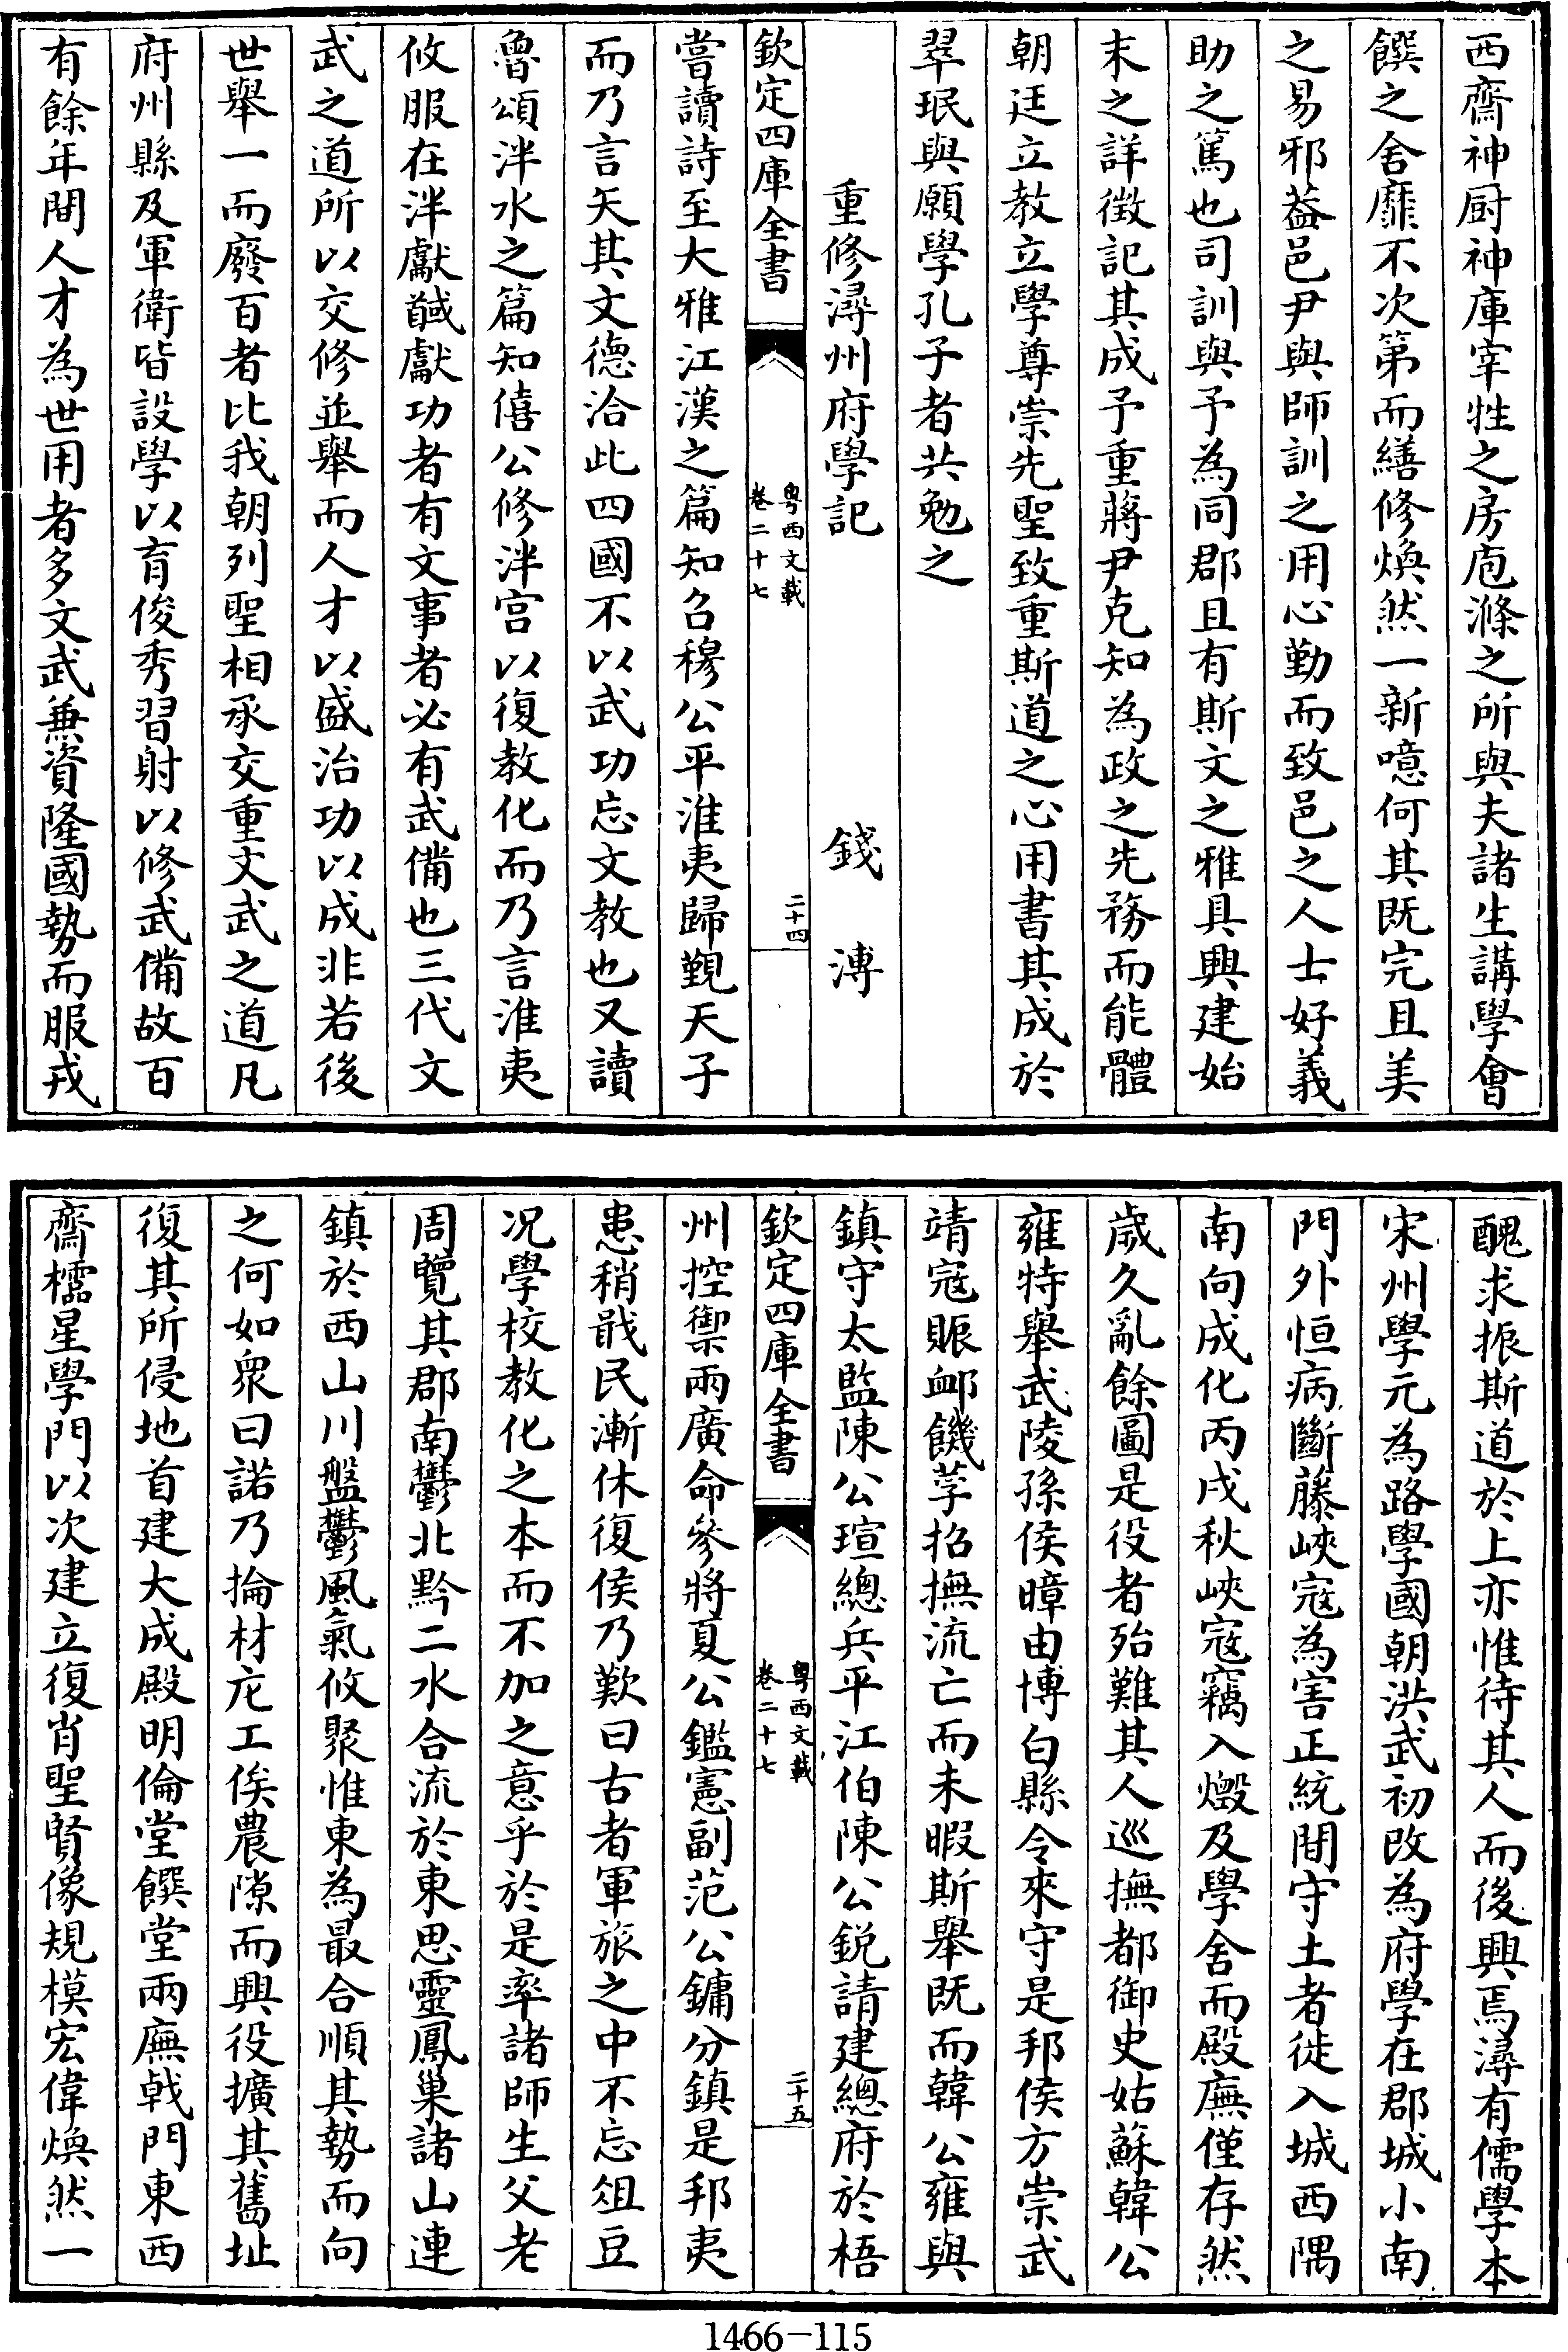 西齋神厨神庫宰牲之房庖滌之所與夫諸生講學會
饌之舍靡不次第而繕修煥然一新噫何其既完且美
之易邪葢邑尹與師訓之用心勤而致邑之人士好義
助之篤也司訓與予為同郡且有斯文之雅具興建始
末之詳徵記其成予重蔣尹克知為政之先務而能體
朝廷立教立學尊崇先聖致重斯道之心用書其成於
翠珉與願學孔子者共勉之
重修潯州府學記 錢溥
欽定四庫全書 粤西文載 卷二十七 二十四
嘗讀詩至大雅江漢之篇知召穆公平淮夷歸覲天子
而乃言矢其文德洽此四國不以武功忘文教也又讀
魯頌泮水之篇知僖公修泮宫以復教化而乃言淮夷
攸服在泮獻馘獻功者有文事者必有武備也三代文
武之道所以交修並舉而人才以盛治功以成非若後
世舉一而廢百者比我朝列聖相承交重文武之道凡
府州縣及軍衛皆設學以育俊秀習射以修武備故百
有餘年間人才為世用者多文武兼資隆國勢而服戎
醜求振斯道於上亦惟待其人而後興焉潯有儒學本
宋州學元為路學國朝洪武初改為府學在郡城小南
門外恒病斷藤峽寇為害正統間守土者徙入城西隅
南向成化丙戌秋峽寇竊入燬及學舍而殿廡僅存然
歲久亂餘圖是役者殆難其人巡撫都御史姑蘇韓公
雍特舉武陵孫侯暲由博白縣令來守是邦侯方崇武
靖寇賑邮饑莩招撫流亡而未暇斯舉既而韓公雍與
鎮守太監陳公瑄總兵平江伯陳公鋭請建總府於梧
欽定四庫全書 粤西文載 卷二十七 二十五
州控禦兩廣命參將夏公鑑憲副范公鏞分鎮是邦夷
患稍戢民漸休復侯乃歎曰古者軍旅之中不忘俎豆
况學校教化之本而不加之意乎於是率諸師生父老
周覽其郡南鬱北黔二水合流於東思靈鳳巢諸山連
鎮於西山川盤鬱風氣攸聚惟東為最合順其勢而向
之何如衆曰諾乃掄材庀工俟農隙而興役擴其舊址
復其所侵地首建大成殿明倫堂饌堂兩廡戟門東西
齋櫺星學門以次建立復肖聖賢像規模宏偉煥然一
1466-115